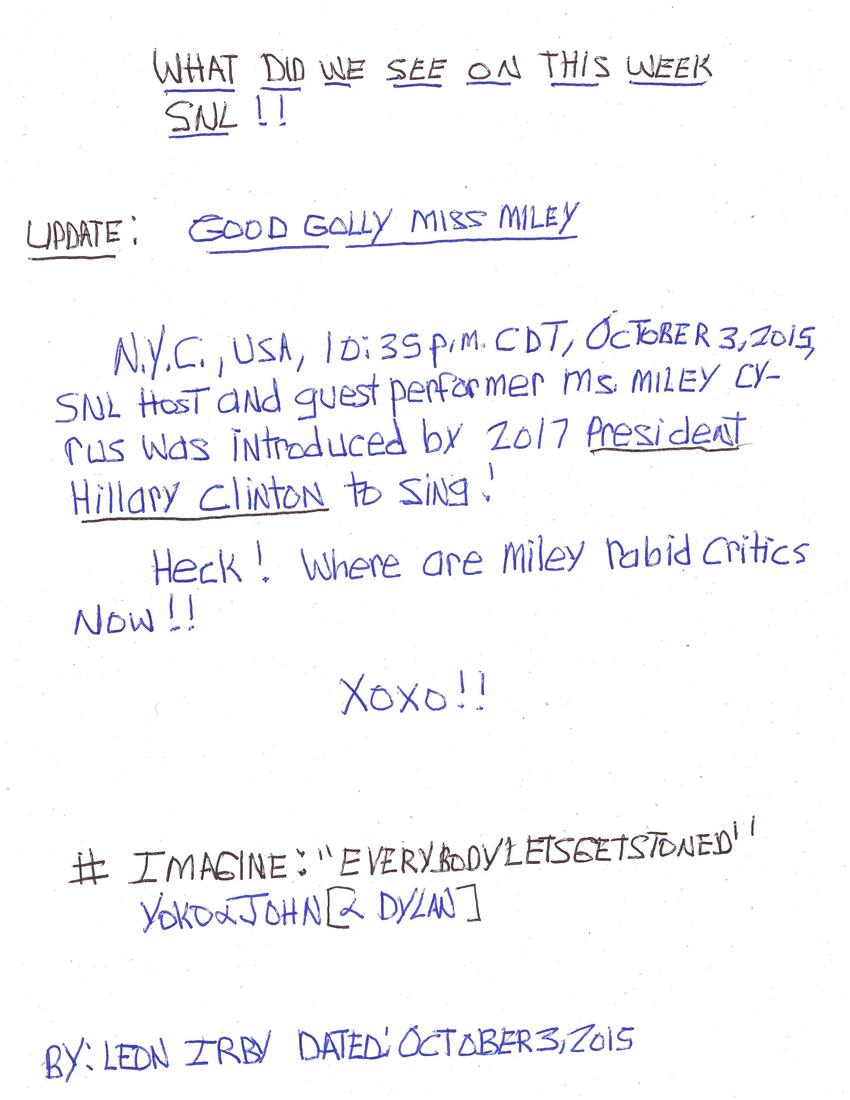 WHAT DID WE SEE ON THIS WEEK
SNL !!
UPDATE: GOOD GOLLY MISS MILEY
N.Y.C., USA, 10:35 p.m. CDT, OCTOBER 3, 2015,
SNL HOST aNd guest performer ms. MILEY CY-
rus was introduced by 2017 President
Hillary Clinton to sing!
Heck! Where are miley rabid critics
Now!!
XOXO!!
# IMAGINE: "EVERYBODYLETSGETSTONED"
YOKO&JOHN[& DYLAN]
BY: LEON IRBY DATED: OCTOBER 3, 2015